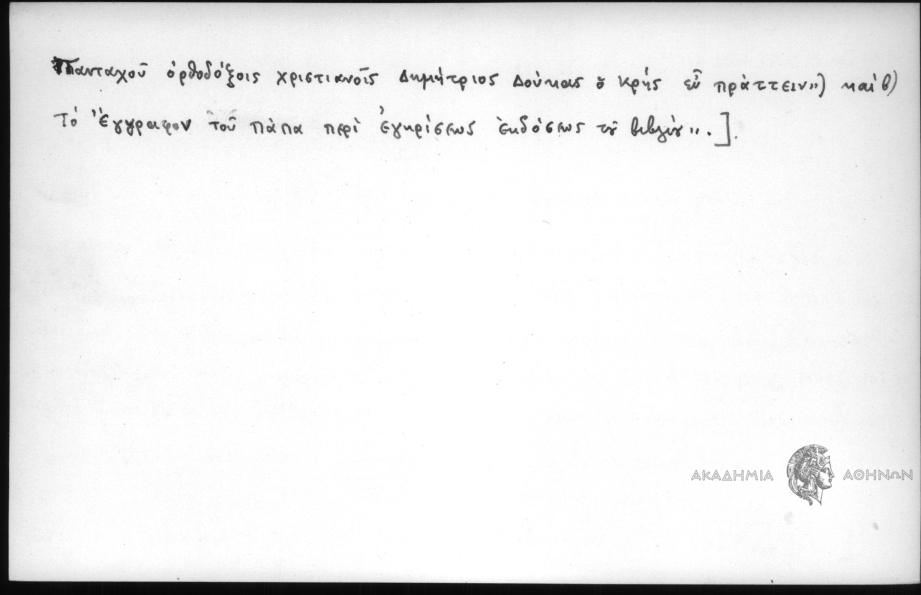 Πανταχοῦ ὀρθοδόξοις χριστιανοῖς Δημήτριος Δούκας ὁ Κρής εὖ πράττειν») καὶ β)
Τό Ἔγγραφον τοῦ Πάπα περὶ Ἐγκρίσεως ἐκδόσεως τοῦ βιβλίου».].
ΑΚΑΔΗΜΙΑ ΑΘΗΝΩΝ